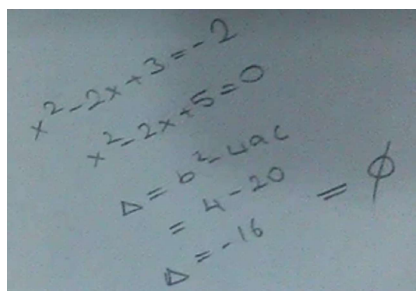 x² - 2x + 3 = -2
x² - 2x + 5 = 0
Δ = b² - 4ac
= 4 - 20
Δ = -16 = ϕ